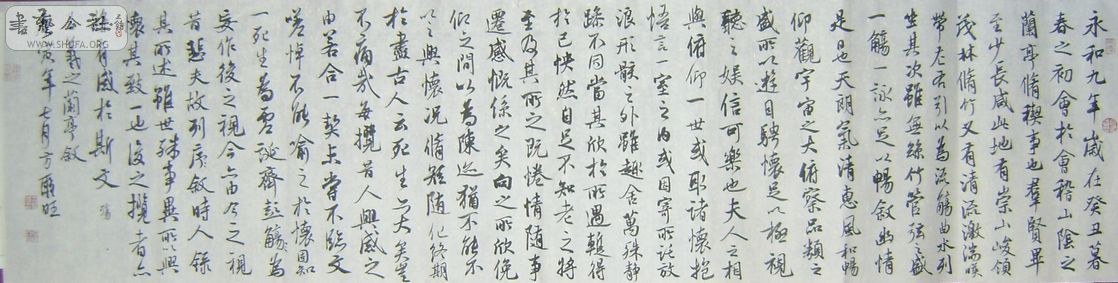 永和九年歲在癸丑暮
春之初會於會稽山陰之
蘭亭脩稧事也羣賢畢
至少長咸此地有崇山峻領
茂林脩竹又有清流激湍暎
帶左右引以為流觴曲水列
坐其次雖無絲竹管弦之盛
一觴一詠亦足以暢敘幽情
是日也天朗氣清惠風和暢
仰觀宇宙之大俯察品類之
盛所以遊目騁懷足以極視
聽之娛信可樂也夫人之相
與俯仰一世或取諸懷抱
悟言一室之內或因寄所託放
浪形骸之外雖趣舍萬殊靜
躁不同當其欣於所遇蹔得
於己怏然自足不知老之將
至及其所之既惓情隨事
遷感慨係之矣向之所欣俛
仰之間以為陳迹猶不能不
以之興懷況脩短隨化終期
於盡古人云死生亦大矣豈
不痛哉每攬昔人興感之
由若合一契未嘗不臨文
嗟悼不能喻之於懷固知
一死生為虛誕齊彭觴為
妄作後之視今亦由今之視
昔悲夫故列序敘時人錄
其所述雖世殊事異所以興
懷其致一也後之攬者亦
將有感於斯文
羲之蘭亭敘
寅年七月方
WWW.SHUFA.ORG